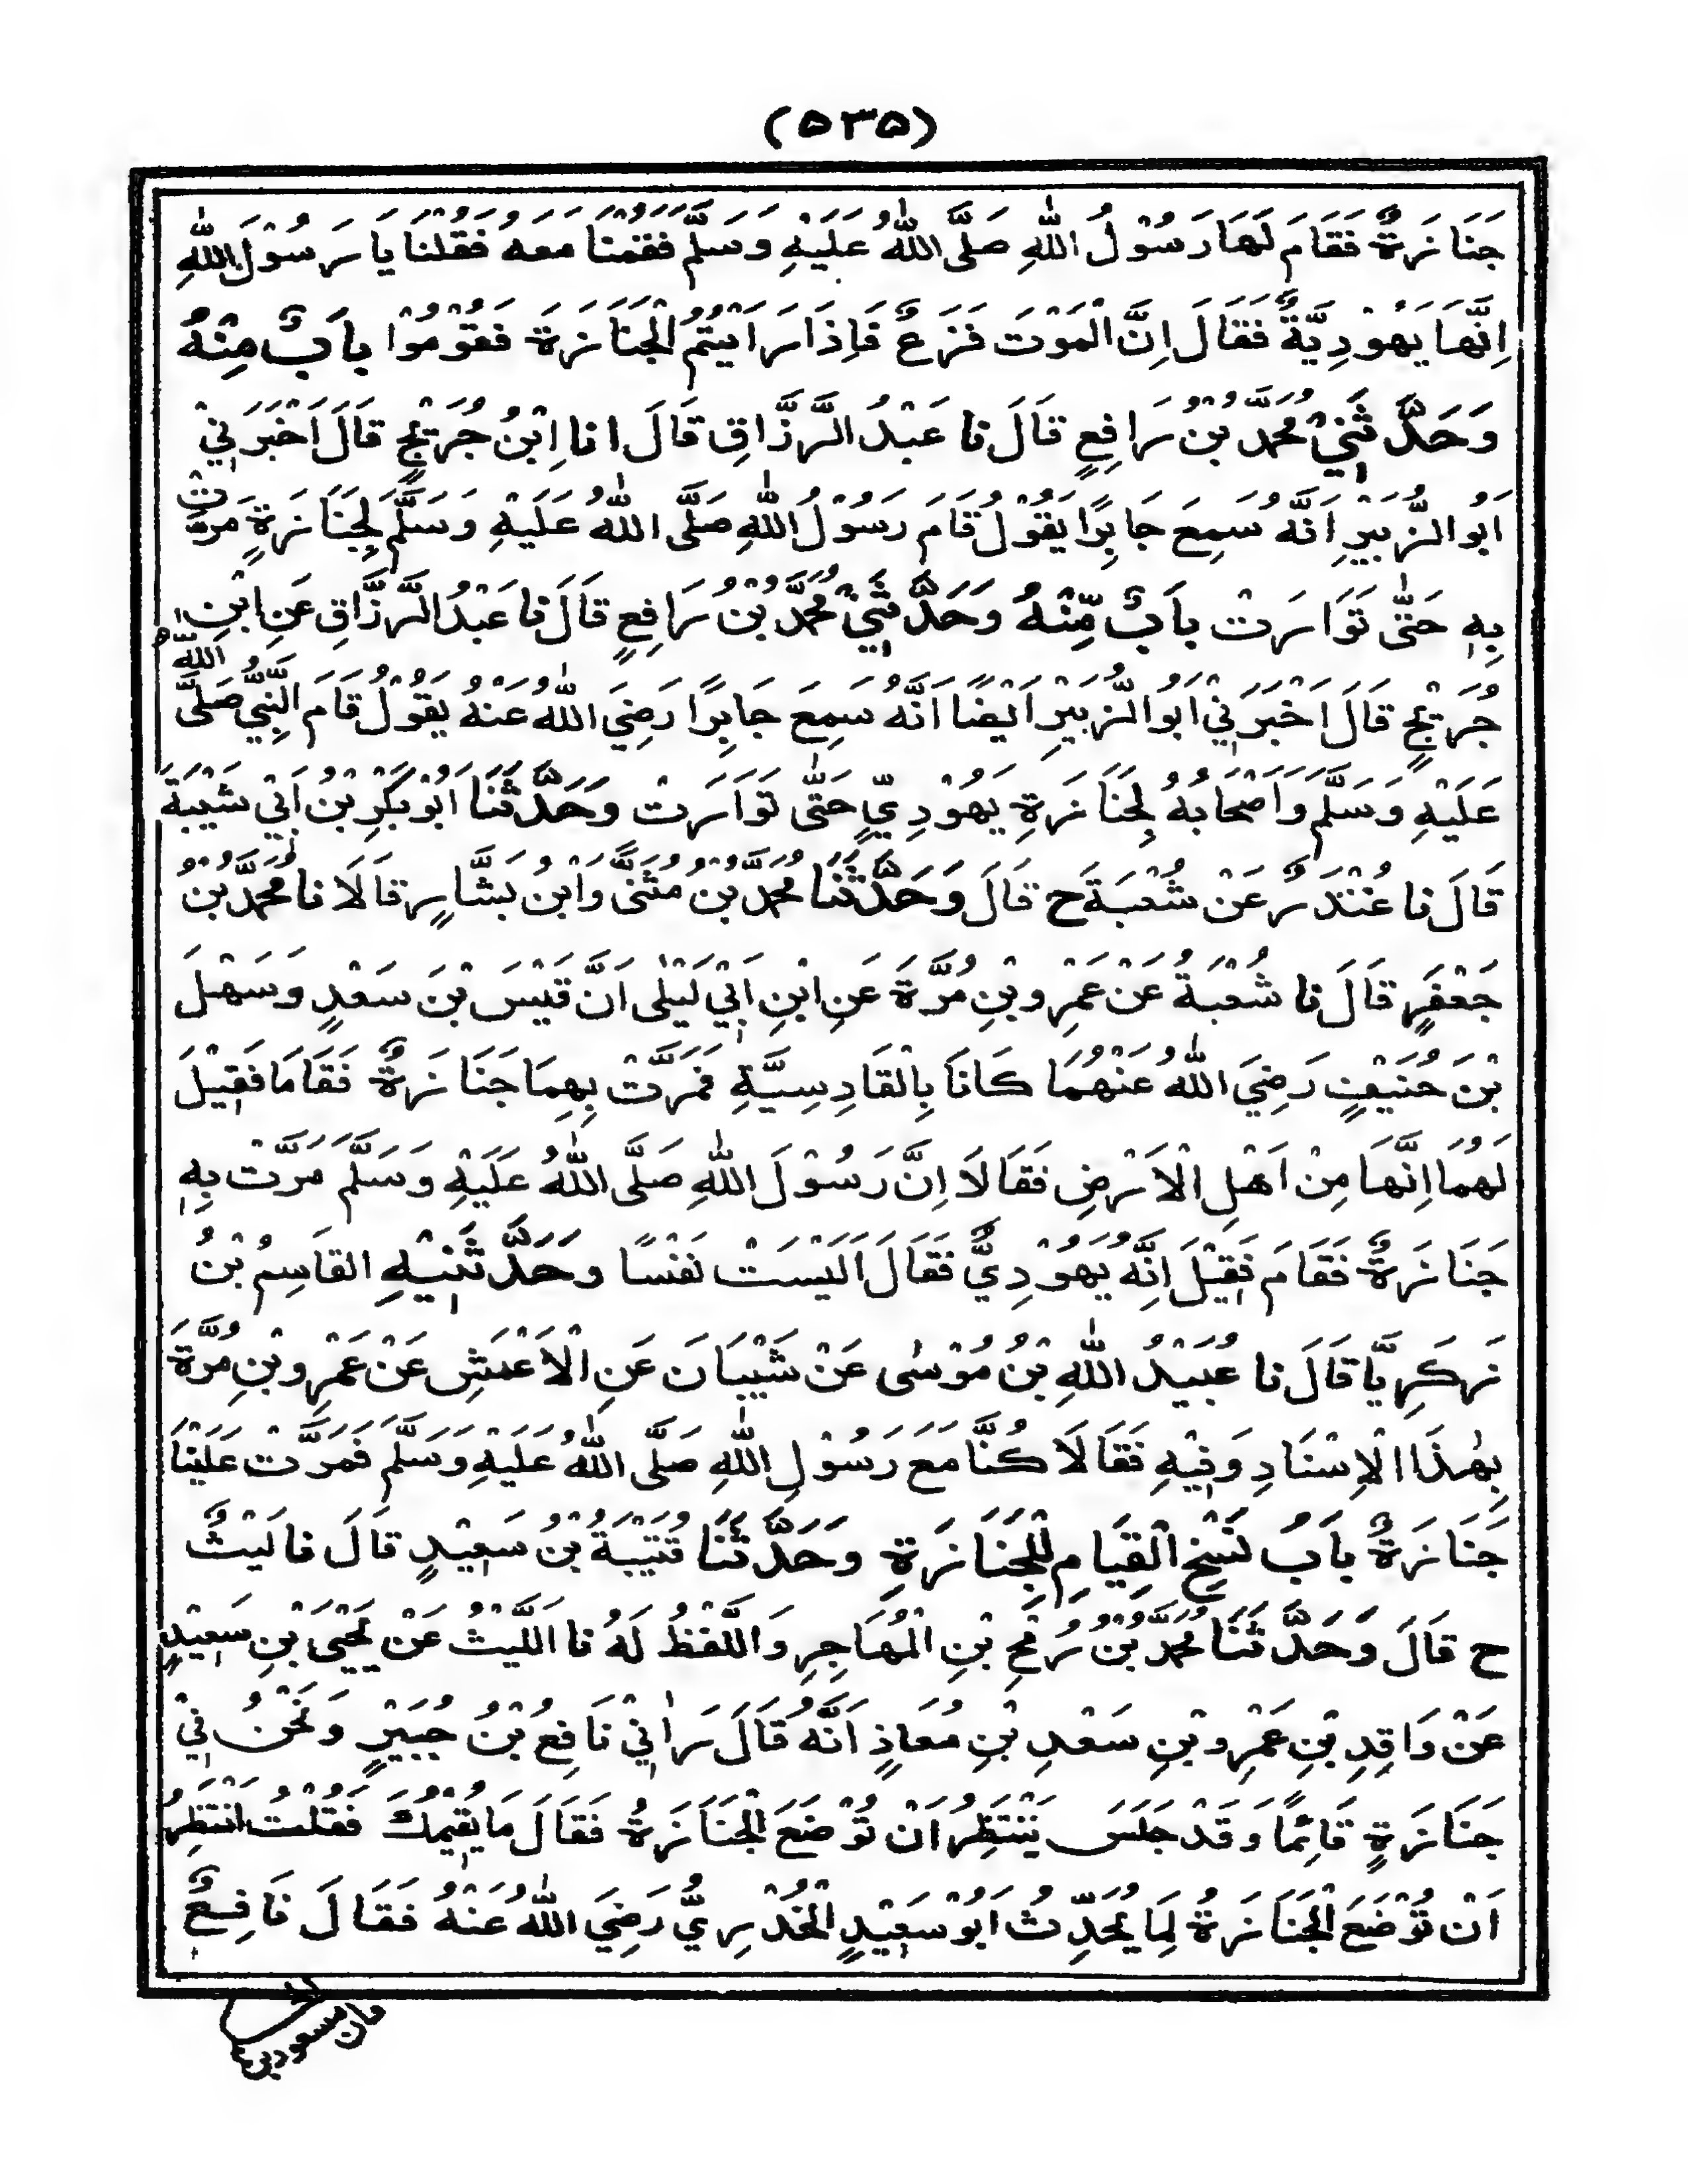 (۵۳۵)
جَنَازَةٌ فَقَامَ لَهَا رَسُوْلُ اللهِ صَلَّى اللهُ عَلَيْهِ وَسَلَّمَ فَقُمْنَا مَعَهُ فَقُلْنَا يَا رَسُوْلَ اللهِ
اِنَّهَا يَهُوْدِيَّةٌ فَقَالَ اِنَّ الْمَوْتَ فَزَعٌ فَاِذَا رَاَيْتُمُ الْجَنَازَةَ فَقُوْمُوْا بَابٌ مِنْهُ
وَحَدَّثَنِيْ مُحَمَّدُ بْنُ رَافِعٍ قَالَ نا عَبْدُ الرَّزَّاقِ قَالَ انا اِبْنُ جُرَيْجٍ قَالَ اَخْبَرَنِيْ
اَبُو الزُّبَيْرِ اَنَّهُ سَمِعَ جَابِرًا يَقُوْلُ قَامَ رَسُوْلُ اللهِ صَلَّى اللهُ عَلَيْهِ وَسَلَّمَ لِجَنَازَةٍ مَرَّتْ
بِهٖ حَتّٰى تَوَارَتْ بَابٌ مِّنْهُ وَحَدَّثَنِيْ مُحَمَّدُ بْنُ رَافِعٍ قَالَ نا عَبْدُ الرَّزَّاقِ عَنِ ابْنِ
جُرَيْجٍ قَالَ اَخْبَرَنِيْ اَبُو الزُّبَيْرِ اَيْضًا اَنَّهُ سَمِعَ جَابِرًا رَضِيَ اللهُ عَنْهُ يَقُوْلُ قَامَ النَّبِيُّ صَلَّى اللهُ
عَلَيْهِ وَسَلَّمَ وَاَصْحَابُهُ لِجَنَازَةِ يَهُوْدِيٍّ حَتّٰى تَوَارَتْ وَحَدَّثَنَا اَبُوْ بَكْرِ بْنُ اَبِيْ شَيْبَةَ
قَالَ نا غُنْدَرٌ عَنْ شُعْبَةَ ح قَالَ وَحَدَّثَنَا مُحَمَّدُ بْنُ مُثَنًّى وَابْنُ بَشَّارٍ قَالَا نا مُحَمَّدُ بْنُ
جَعْفَرٍ قَالَ نا شُعْبَةُ عَنْ عَمْرِو بْنِ مُرَّةَ عَنِ ابْنِ اَبِيْ لَيْلٰى اَنَّ قَيْسَ بْنَ سَعْدٍ وَسَهْلَ
بْنَ حُنَيْفٍ رَضِيَ اللهُ عَنْهُمَا كَانَا بِالْقَادِسِيَّةِ فَمَرَّتْ بِهِمَا جَنَازَةٌ فَقَامَا فَقِيْلَ
لَهُمَا اِنَّهَا مِنْ اَهْلِ الْاَرْضِ فَقَالَا اِنَّ رَسُوْلَ اللهِ صَلَّى اللهُ عَلَيْهِ وَسَلَّمَ مَرَّتْ بِهٖ
جَنَازَةٌ فَقَامَ فَقِيْلَ اِنَّهُ يَهُوْدِيٌّ فَقَالَ اَلَيْسَتْ نَفْسًا وَحَدَّثَنِيْهِ الْقَاسِمُ بْنُ
زَكَرِيَّا قَالَ نا عُبَيْدُ اللهِ بْنُ مُوْسٰى عَنْ شَيْبَانَ عَنِ الْاَعْمَشِ عَنْ عَمْرِو بْنِ مُرَّةَ
بِهٰذَا الْاِسْنَادِ وَفِيْهِ فَقَالَا كُنَّا مَعَ رَسُوْلِ اللهِ صَلَّى اللهُ عَلَيْهِ وَسَلَّمَ فَمَرَّتْ عَلَيْنَا
جَنَازَةٌ بَابُ نَسْخِ الْقِيَامِ لِلْجَنَازَةِ وَحَدَّثَنَا قُتَيْبَةُ بْنُ سَعِيْدٍ قَالَ نا لَيْثٌ
ح قَالَ وَحَدَّثَنَا مُحَمَّدُ بْنُ رُمْحِ بْنِ الْمُهَاجِرِ وَاللَّفْظُ لَهُ نا اللَّيْثُ عَنْ يَحْيَى بْنِ سَعِيْدٍ
عَنْ وَاقِدِ بْنِ عَمْرِو بْنِ سَعْدِ بْنِ مُعَاذٍ اَنَّهُ قَالَ رَاٰنِيْ نَافِعُ بْنُ جُبَيْرٍ وَنَحْنُ فِيْ
جَنَازَةٍ قَائِمًا وَقَدْ جَلَسَ يَنْتَظِرُ اَنْ تُوْضَعَ الْجَنَازَةُ فَقَالَ مَا يُقِيْمُكَ فَقُلْتُ اَنْتَظِرُ
اَنْ تُوْضَعَ الْجَنَازَةُ لِمَا يُحَدِّثُ اَبُوْ سَعِيْدٍ الْخُدْرِيُّ رَضِيَ اللهُ عَنْهُ فَقَالَ نَافِعٌ